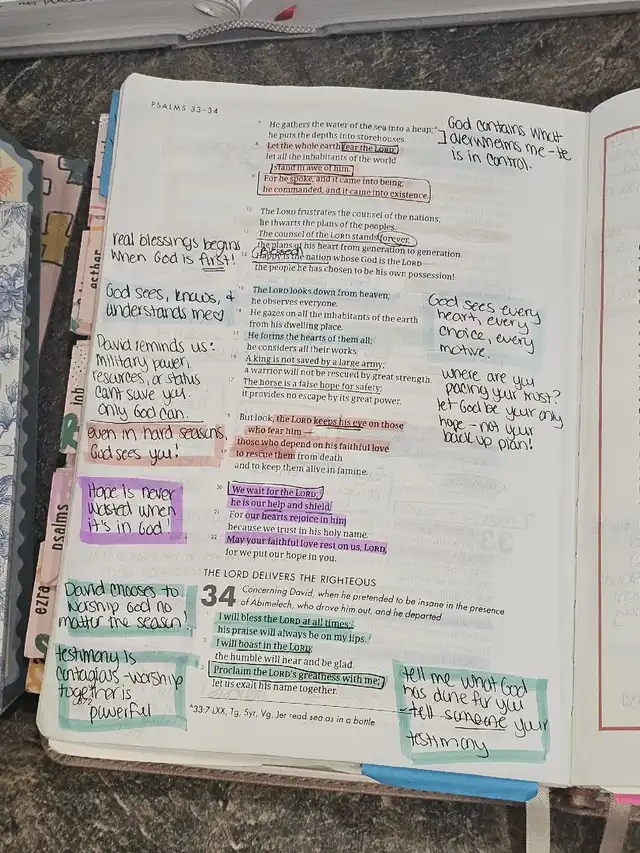 PSALMS 33–34
7 He gathers the water of the sea into a heap;^
he puts the depths into storehouses.
8 Let the whole earth fear the LORD;
let all the inhabitants of the world
stand in awe of him.
9 For he spoke, and it came into being;
he commanded, and it came into existence.
God contains what
overwhelms me - He
is in control.
10 The LORD frustrates the counsel of the nations;
he thwarts the plans of the peoples.
11 The counsel of the LORD stands forever,
the plans of his heart from generation to generation.
blessed!
12 Happy is the nation whose God is the LORD —
the people he has chosen to be his own possession!
real blessings begins
when God is first!
13 The LORD looks down from heaven;
he observes everyone.
14 He gazes on all the inhabitants of the earth
from his dwelling place.
15 He forms the hearts of them all;
he considers all their works.
16 A king is not saved by a large army;
a warrior will not be rescued by great strength.
17 The horse is a false hope for safety;
it provides no escape by its great power.
God sees, knows, &
understands me♡
David reminds us:
Military power,
resources, or status
cant save you.
only God can.
God sees every
heart, every
choice, every
motive.
where are you
placing your trust?
let God be your only
hope - not your
back up plan!
18 But look, the LORD keeps his eye on those
who fear him —
those who depend on his faithful love
19 to rescue them from death
and to keep them alive in famine.
even in hard seasons,
God sees you!
20 We wait for the LORD;
he is our help and shield.
21 For our hearts rejoice in him
because we trust in his holy name.
22 May your faithful love rest on us, LORD,
for we put our hope in you.
Hope is never
wasted when
it's in God!
THE LORD DELIVERS THE RIGHTEOUS
34 Concerning David, when he pretended to be insane in the presence
of Abimelech, who drove him out, and he departed.
1 I will bless the LORD at all times;
his praise will always be on my lips.
2 I will boast in the LORD;
the humble will hear and be glad.
3 Proclaim the LORD's greatness with me;
let us exalt his name together.
David chooses to
worship God no
matter the season!
testimony is
contagious - worship
together is
powerful
tell me what God
has done for you
- tell someone your
testimony
^33:7 LXX, Tg, Syr, Vg, Jer read sea as in a bottle
esther
job
psalms
ezra